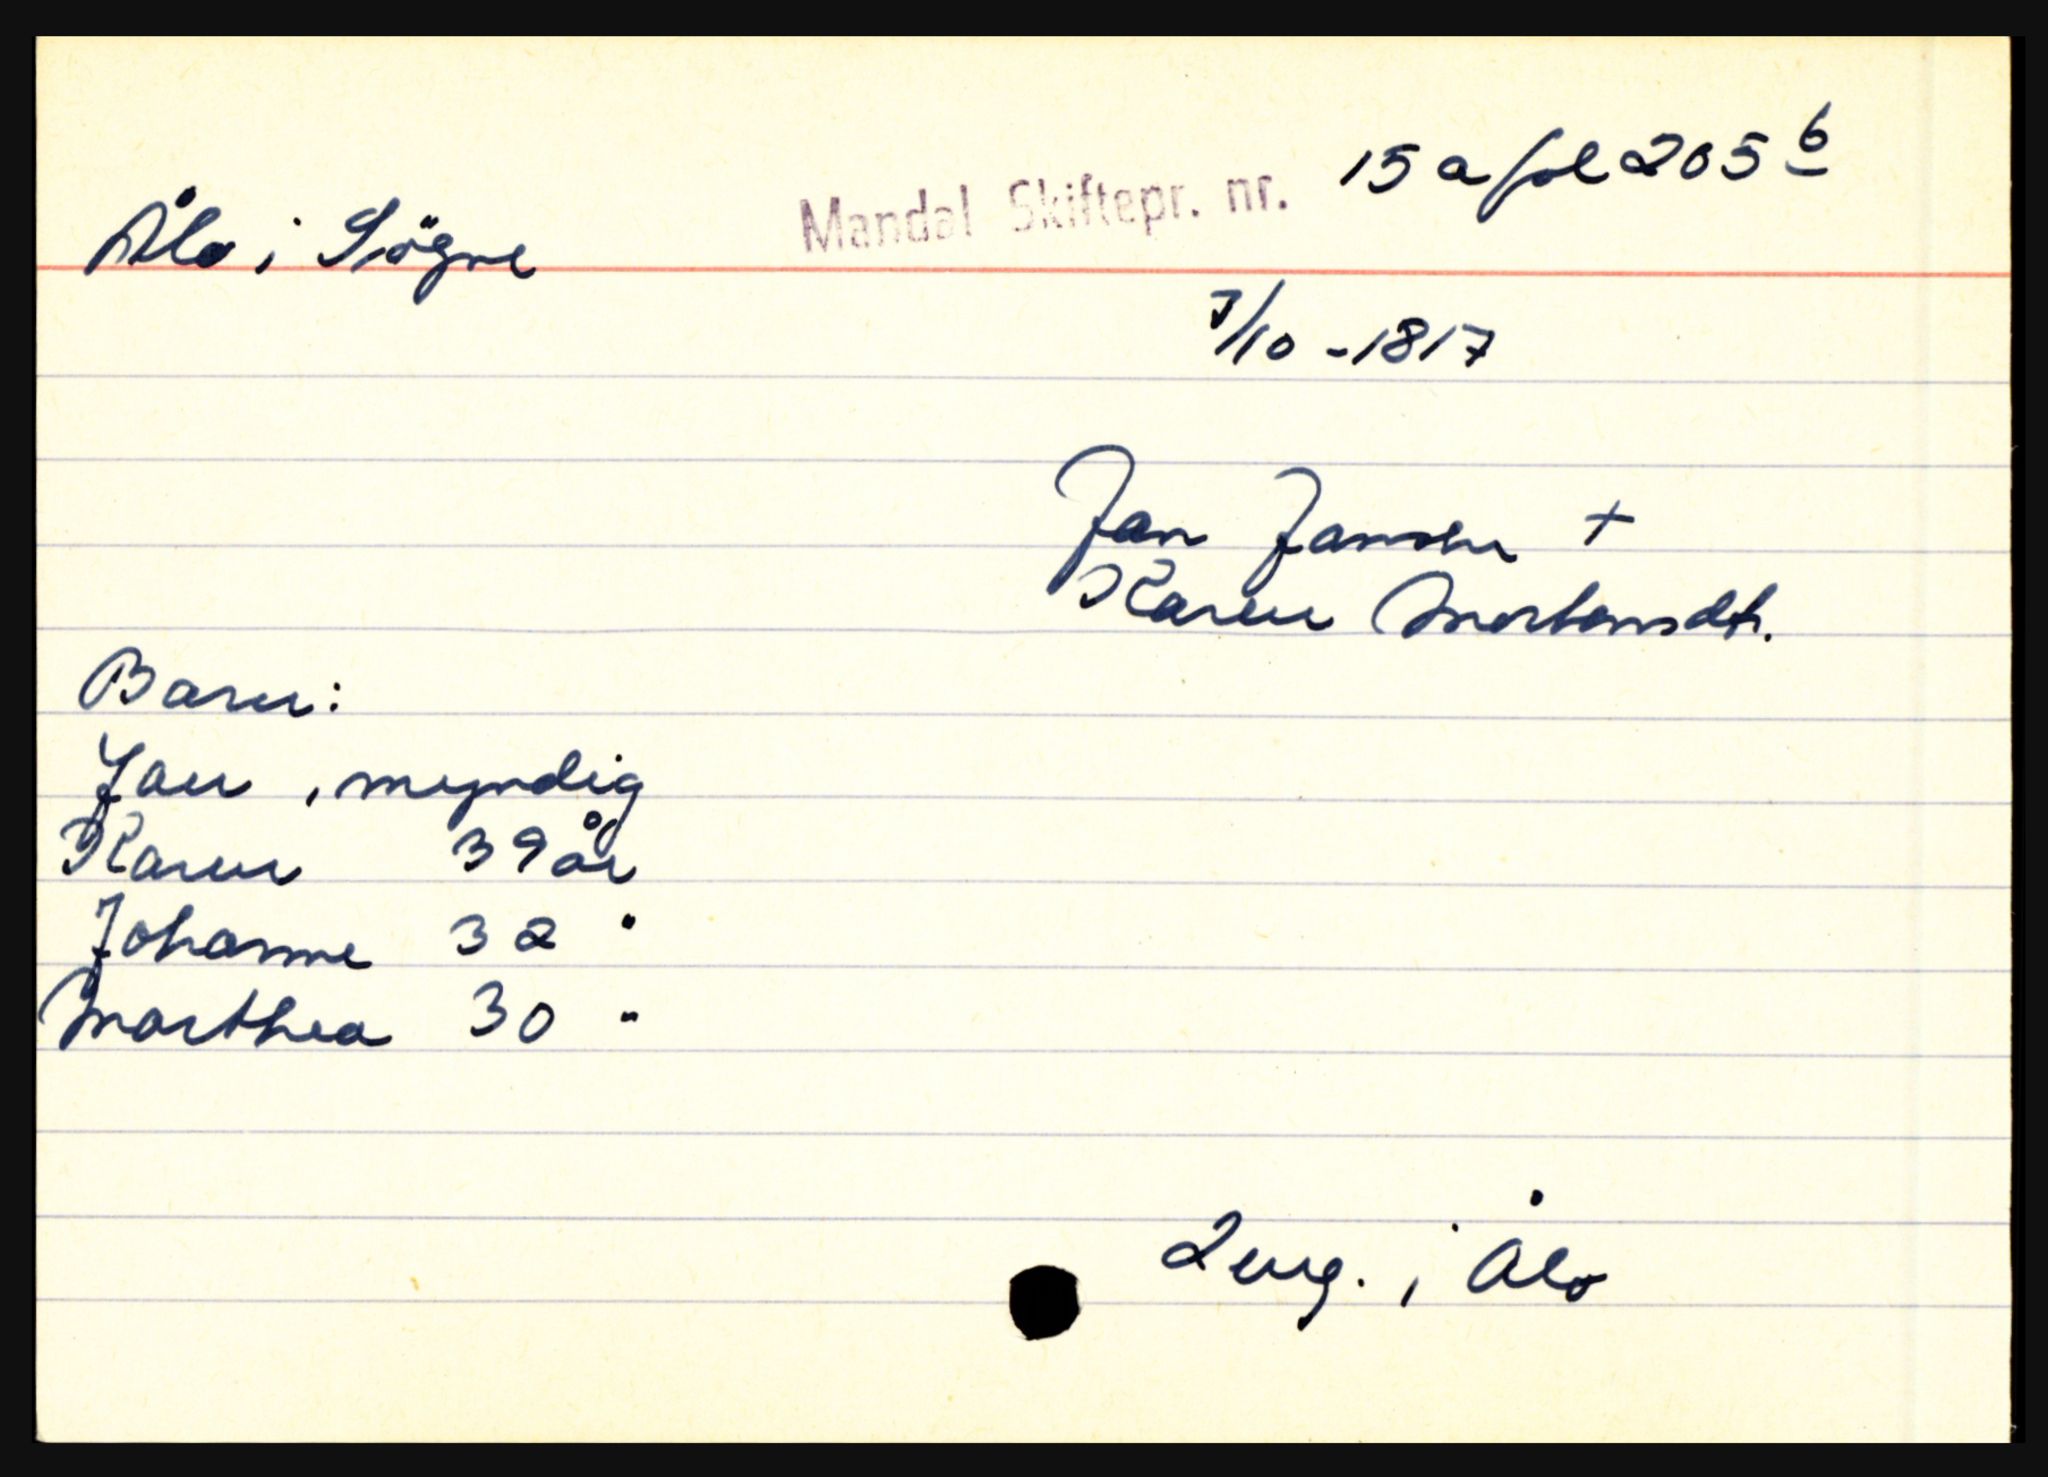 Ålo i Sögne
Mandal Skiftepr. nr. 15 a fol 205 b
7/10 - 1817
Jan Jansen +
Karen Mortensdt.
Barn:
Jan, myndig
Karen 39 år
Johanne 32 "
Marthea 30 "
2 eng. i Ålo